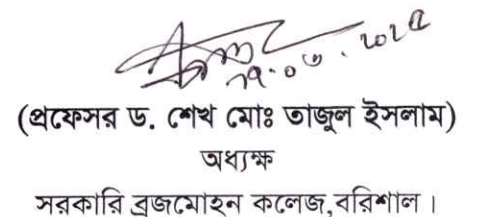 (প্রফেসর ড. শেখ মোঃ তাজুল ইসলাম)
অধ্যক্ষ
সরকারি ব্রজমোহন কলেজ,বরিশাল।